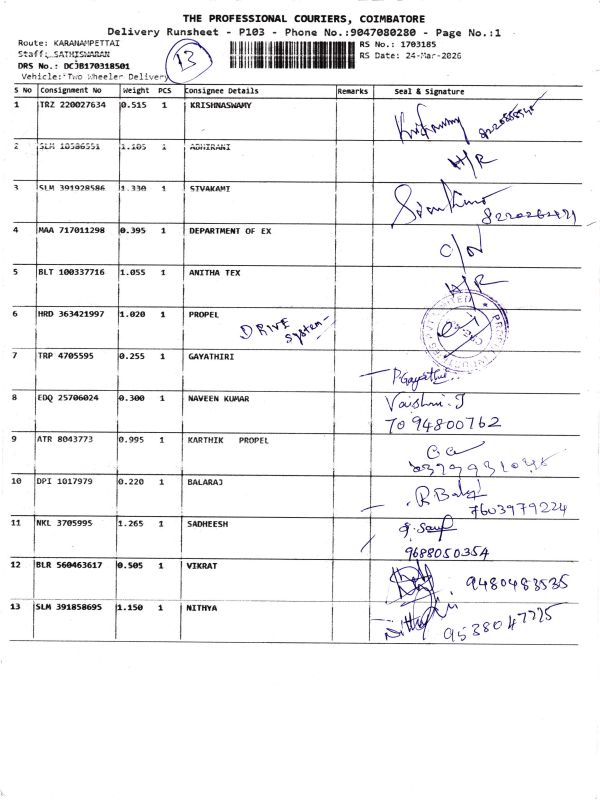 THE PROFESSIONAL COURIERS, COIMBATORE
Delivery Runsheet - P103 - Phone No.:9047080280 - Page No.:1
Route: KARANAMPETTAI
Staff: SATHISWARAN
DRS No.: DCJB170318501
Vehicle: Two Wheeler Delivery
13
RS No.: 1703185
RS Date: 24-Mar-2026
S No Consignment No Weight PCS Consignee Details Remarks Seal & Signature
1 TRZ 220027634 0.515 1 KRISHNASWAMY
2 SLM 10586551 1.105 1 ADHIRANI H/R
3 SLM 391928586 1.330 1 SIVAKAMI
4 MAA 717011298 0.395 1 DEPARTMENT OF EX
5 BLT 100337716 1.055 1 ANITHA TEX H/R
6 HRD 363421997 1.020 1 PROPEL DRIVE System
7 TRP 4705595 0.255 1 GAYATHIRI P.Gayathri
8 EDQ 25706024 0.300 1 NAVEEN KUMAR Vaishni.J
7094800762
9 ATR 8043773 0.995 1 KARTHIK PROPEL
10 DPI 1017979 0.220 1 BALARAJ R.Balaji
7603979224
11 NKL 3705995 1.265 1 SADHEESH
9688050354
12 BLR 560463617 0.505 1 VIKRAT 9480483535
13 SLM 391858695 1.150 1 NITHYA 9538047775